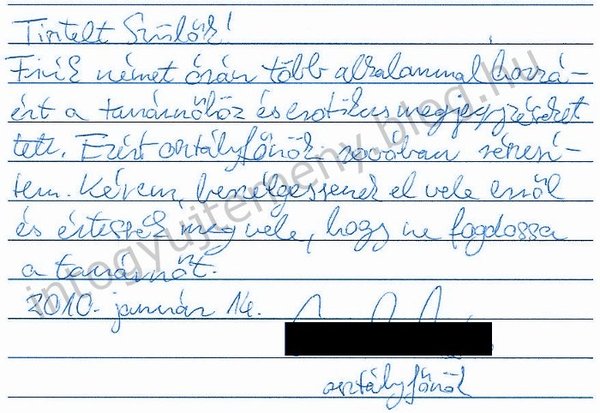 Tisztelt Szülők!
Fiuk német órán több alkalommal hozzá-
ért a tanárnőhöz és erotikus megjegyzéseket
tett. Ezért osztályfőnöki rovóban részesí-
tem. Kérem, beszélgessenek el vele erről
és értessék meg vele, hogy ne fogdossa
a tanárnőt.
2010. január 14.
osztályfőnök
infogyujtemeny.blog.hu